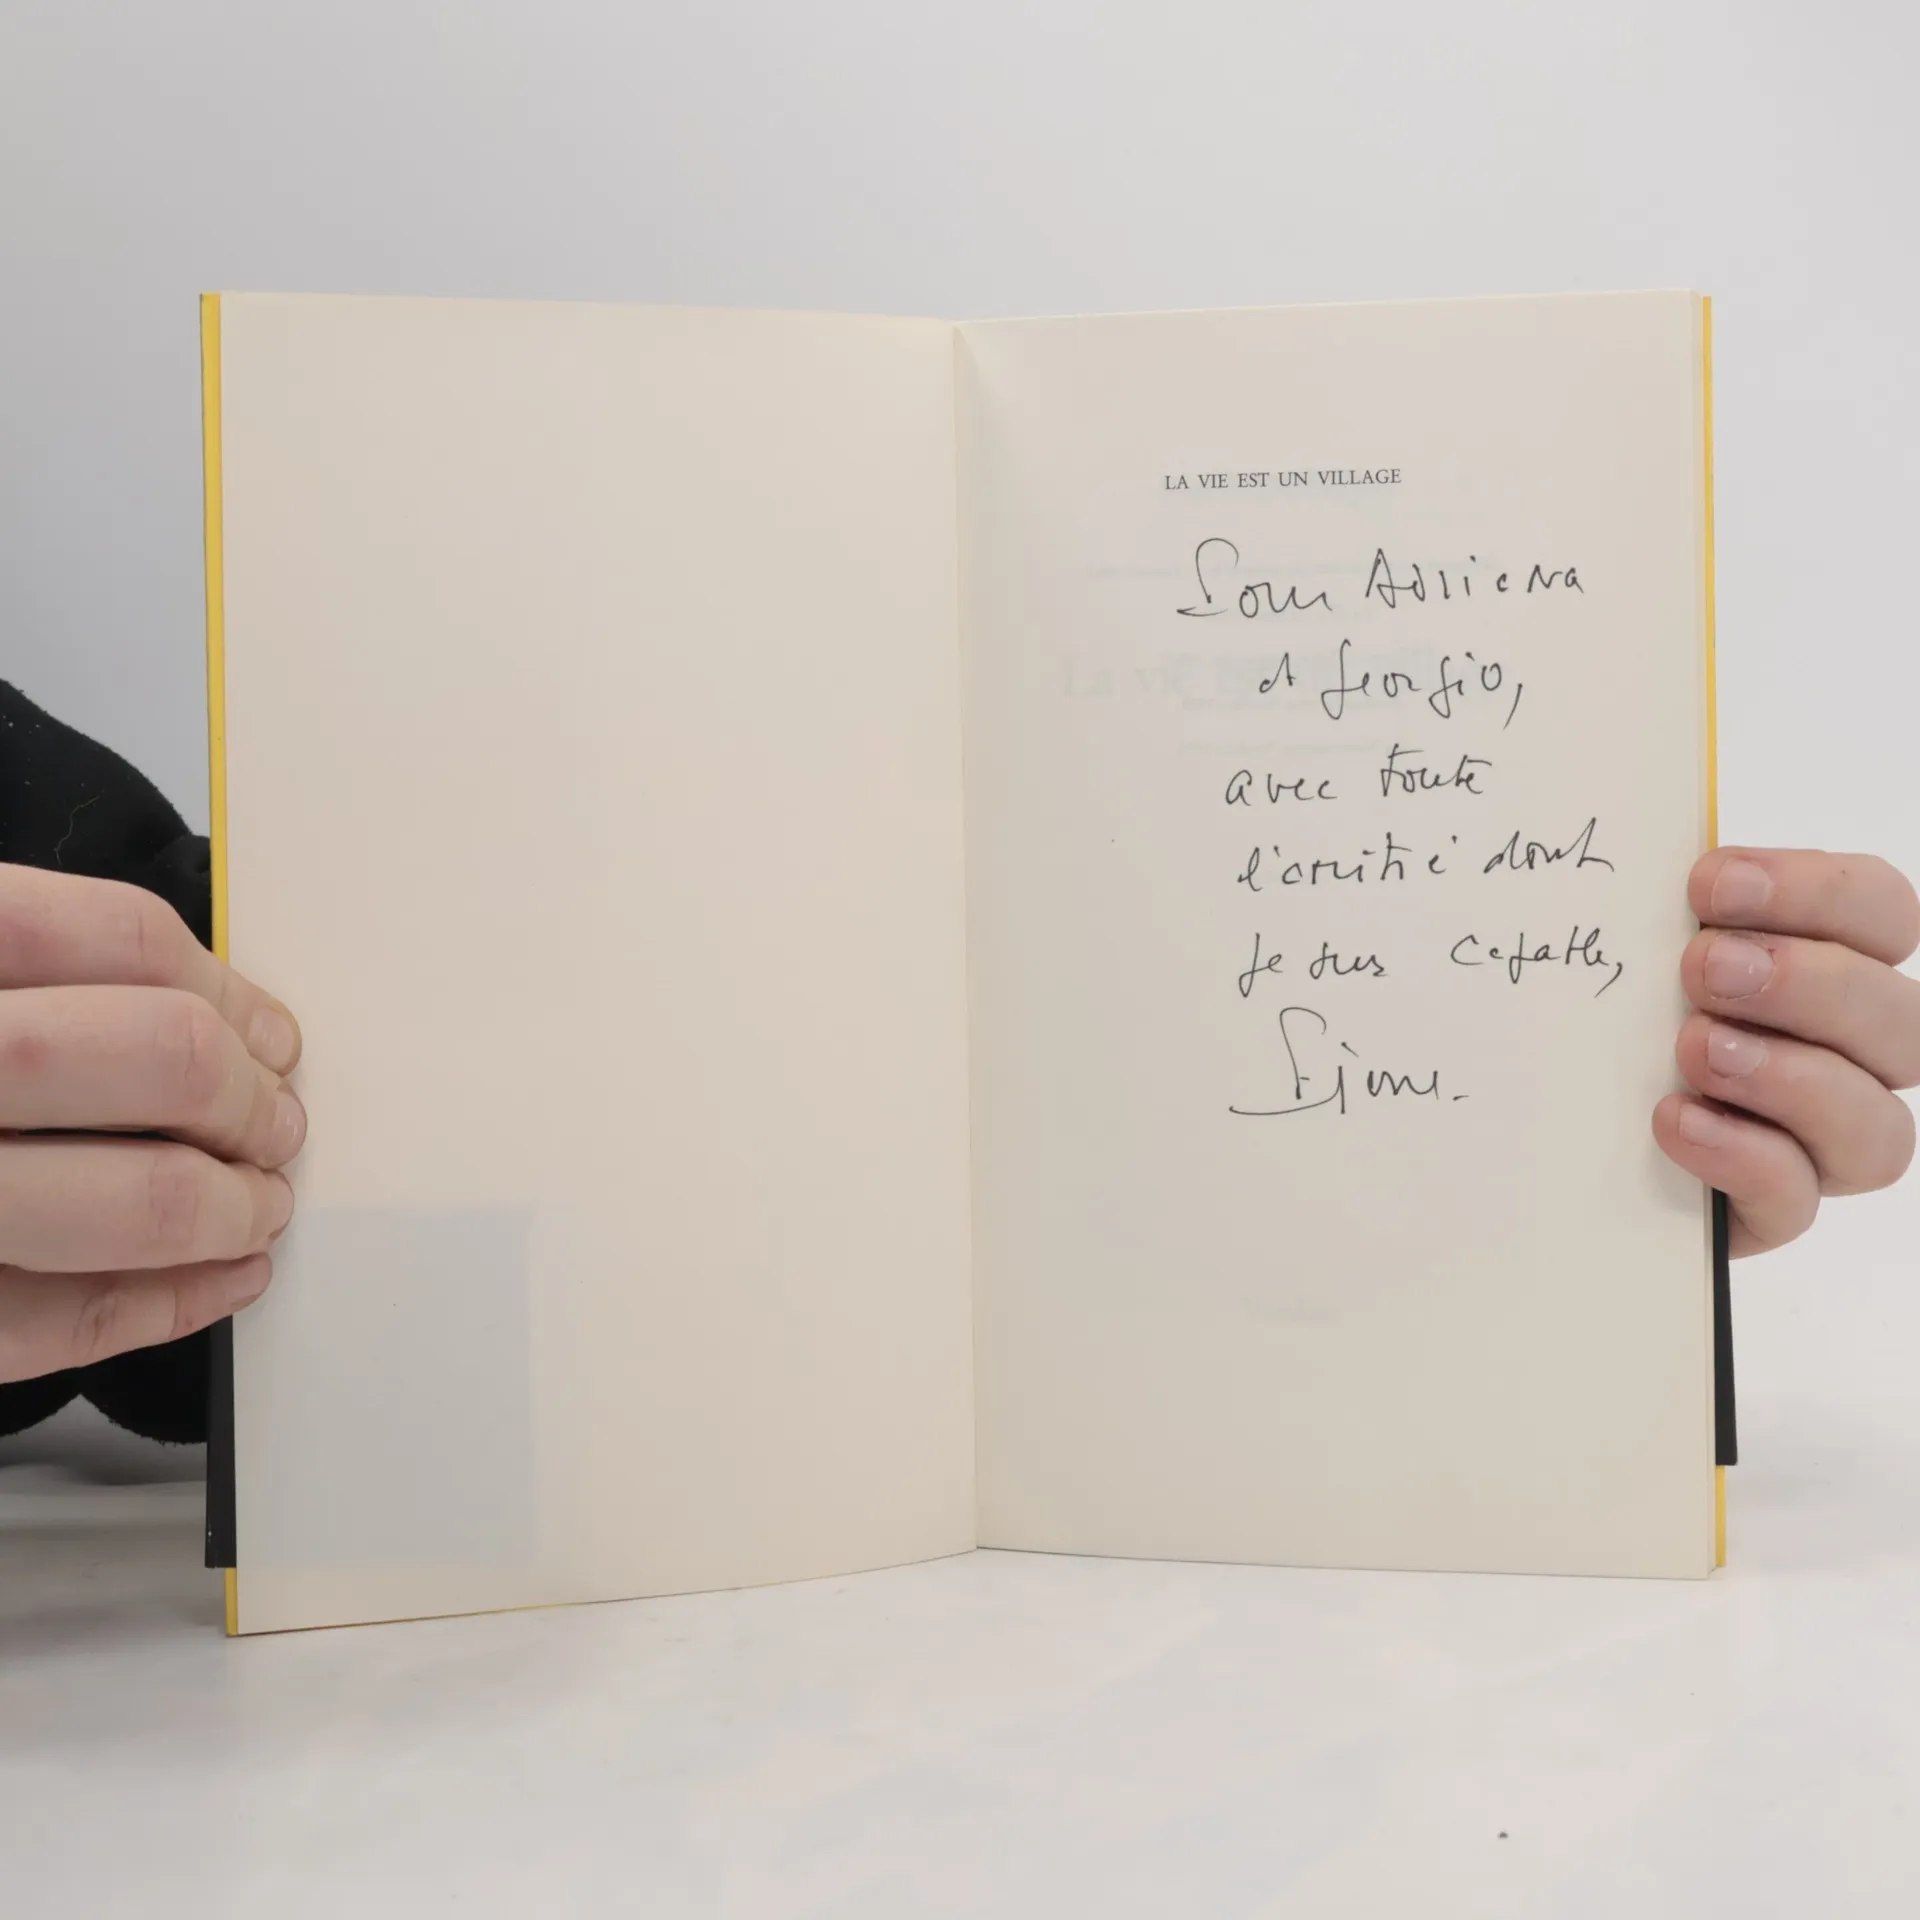 LA VIE EST UN VILLAGE
Pour Adriana
et Georgio,
avec toute
l'amitié dont
je suis capable,